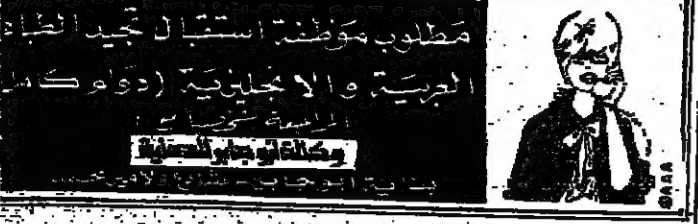 مطلوب موظفة استقبال تجيد الطباعة
العربية والانجليزية (دوام كامل
المراجعة
وكالة ابو جابر
بناية ابو جابر - شارع الامير محمد